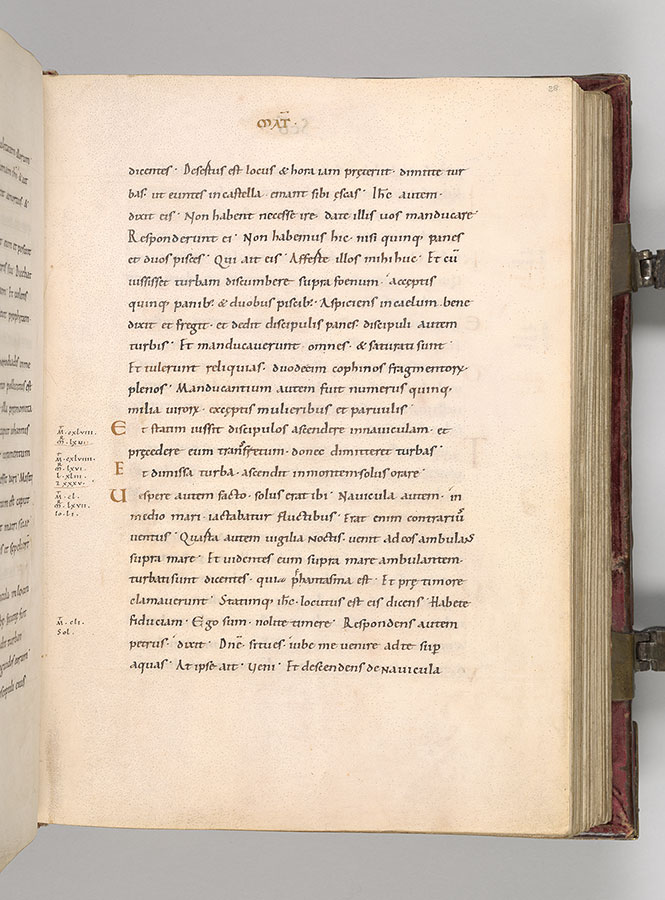 28
MAT̄·
dicentes· Desertus est locus & hora iam preteriit· dimitte tur
bas· ut euntes in castella· emant sibi escas· Ihc̄ autem·
dixit eis· Non habent necesse ire· date illis uos manducare·
Responderunt ei· Non habemus hic· nisi quinq; panes
et duos pisces· Qui ait eis· Afferte illos mihi huc· Et cū
iussisset turbam discumbere supra foenum· acceptis
quinq; panib; & duobus piscib;· Aspiciens in caelum bene
dixit et fregit· et dedit discipulis panes· discipuli autem
turbis· Et manducauerunt· omnes· & saturati sunt·
Et tulerunt reliquias· duodecim cophinos fragmentorꝝ·
plenos· Manducantium autem fuit numerus quinq·
milia uirorꝝ· exceptis mulieribus et paruulis·
Et statim iussit discipulos ascendere in nauiculam· et
precedere eum transfretum· donec dimitteret turbas·
Et dimissa turba· ascendit in montem solus orare·
Uespere autem facto· solus erat ibi· Nauicula autem· in
medio mari· iactabatur fluctibus· Erat enim contrariū
uentus· Quarta autem uigilia noctis· uenit ad eos ambulans
supra mare· Et uidentes eum supra mare ambulantem·
turbati sunt dicentes· quia phantasma est· Et pre timore
clamauerunt· Statimq; ihc̄· locutus est eis dicens· Habete
fiduciam· Ego sum· nolite timere· Respondens autem
petrus· dixit· Dn̄e· si tu es· iube me uenire ad te sup
aquas· At ipse ait· Veni· Et descendens de nauicula
M̄· cxlviii·
m̄· lxvi·
M̄· cxlviiii·
m̄· lxvi·
l· xliii·
M̄· cl·
m̄· lxvii·
Io· li·
M̄· cli·
Sol·